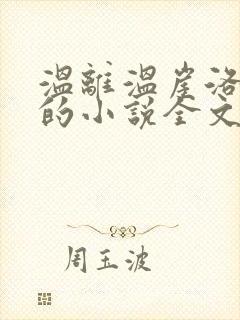 温離温崖洛
的小說全文
周玉波